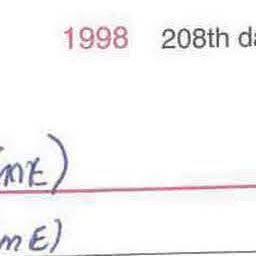 1998 208th da
mE)
mE)